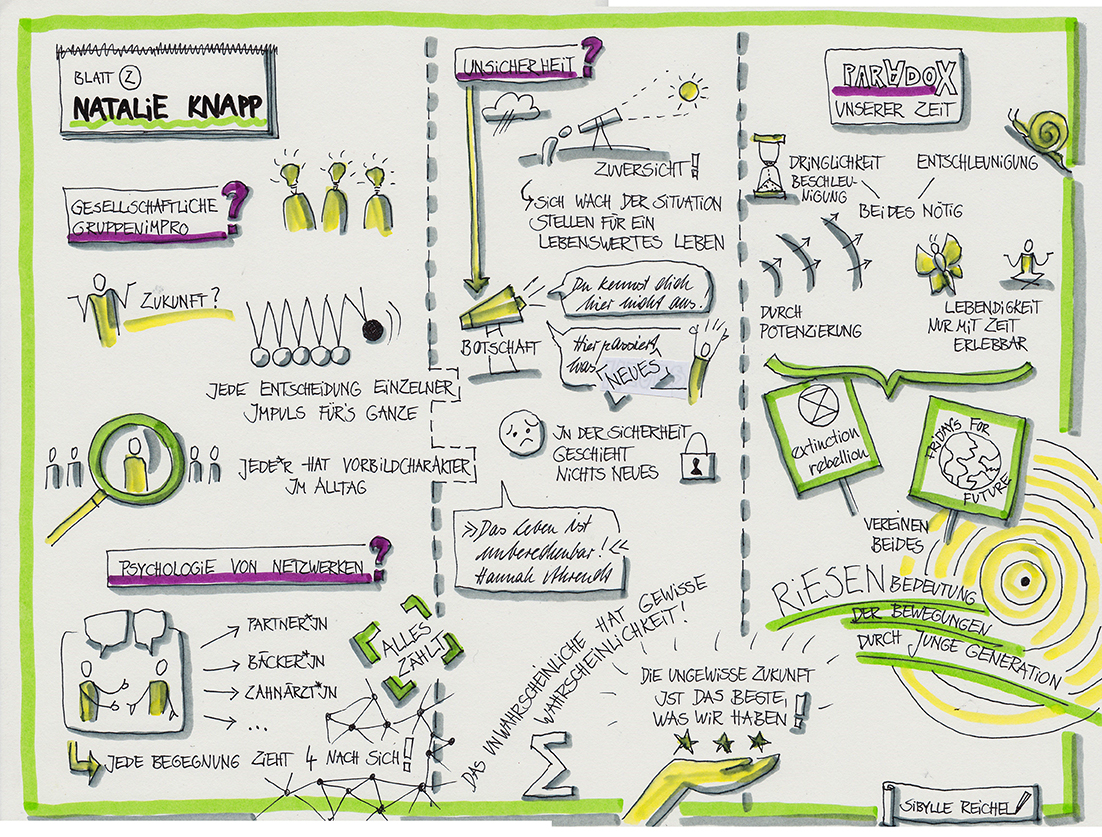 BLATT 2
NATALIE KNAPP
GESELLSCHAFTLICHE
GRUPPENIMPRO ?
ZUKUNFT?
JEDE ENTSCHEIDUNG EINZELNER
IMPULS FÜR'S GANZE
JEDE*R HAT VORBILDCHARAKTER
IM ALLTAG
PSYCHOLOGIE VON NETZWERKEN ?
PARTNER*IN
BÄCKER*IN
ZAHNÄRZT*IN
...
ALLES
ZÄHLT
JEDE BEGEGNUNG ZIEHT 4 NACH SICH!
UNSICHERHEIT ?
ZUVERSICHT!
SICH WACH DER SITUATION
STELLEN FÜR EIN
LEBENSWERTES LEBEN
BOTSCHAFT
Du kennst dich
hier nicht aus.
Hier passiert
was
NEUES
IN DER SICHERHEIT
GESCHIEHT
NICHTS NEUES
»Das Leben ist
unberechenbar!«
Hannah Ahrendt
DAS UNWAHRSCHEINLICHE HAT GEWISSE
WAHRSCHEINLICHKEIT!
Σ
DIE UNGEWISSE ZUKUNFT
IST DAS BESTE,
WAS WIR HABEN!
PARADOX
UNSERER ZEIT
DRINGLICHKEIT
BESCHLEU-
NIGUNG
ENTSCHLEUNIGUNG
BEIDES NÖTIG
DURCH
POTENZIERUNG
LEBENDIGKEIT
NUR MIT ZEIT
ERLEBBAR
extinction
rebellion
FRIDAYS FOR
FUTURE
VEREINEN
BEIDES
RIESEN BEDEUTUNG
DER BEWEGUNGEN
DURCH JUNGE GENERATION
SIBYLLE REICHEL